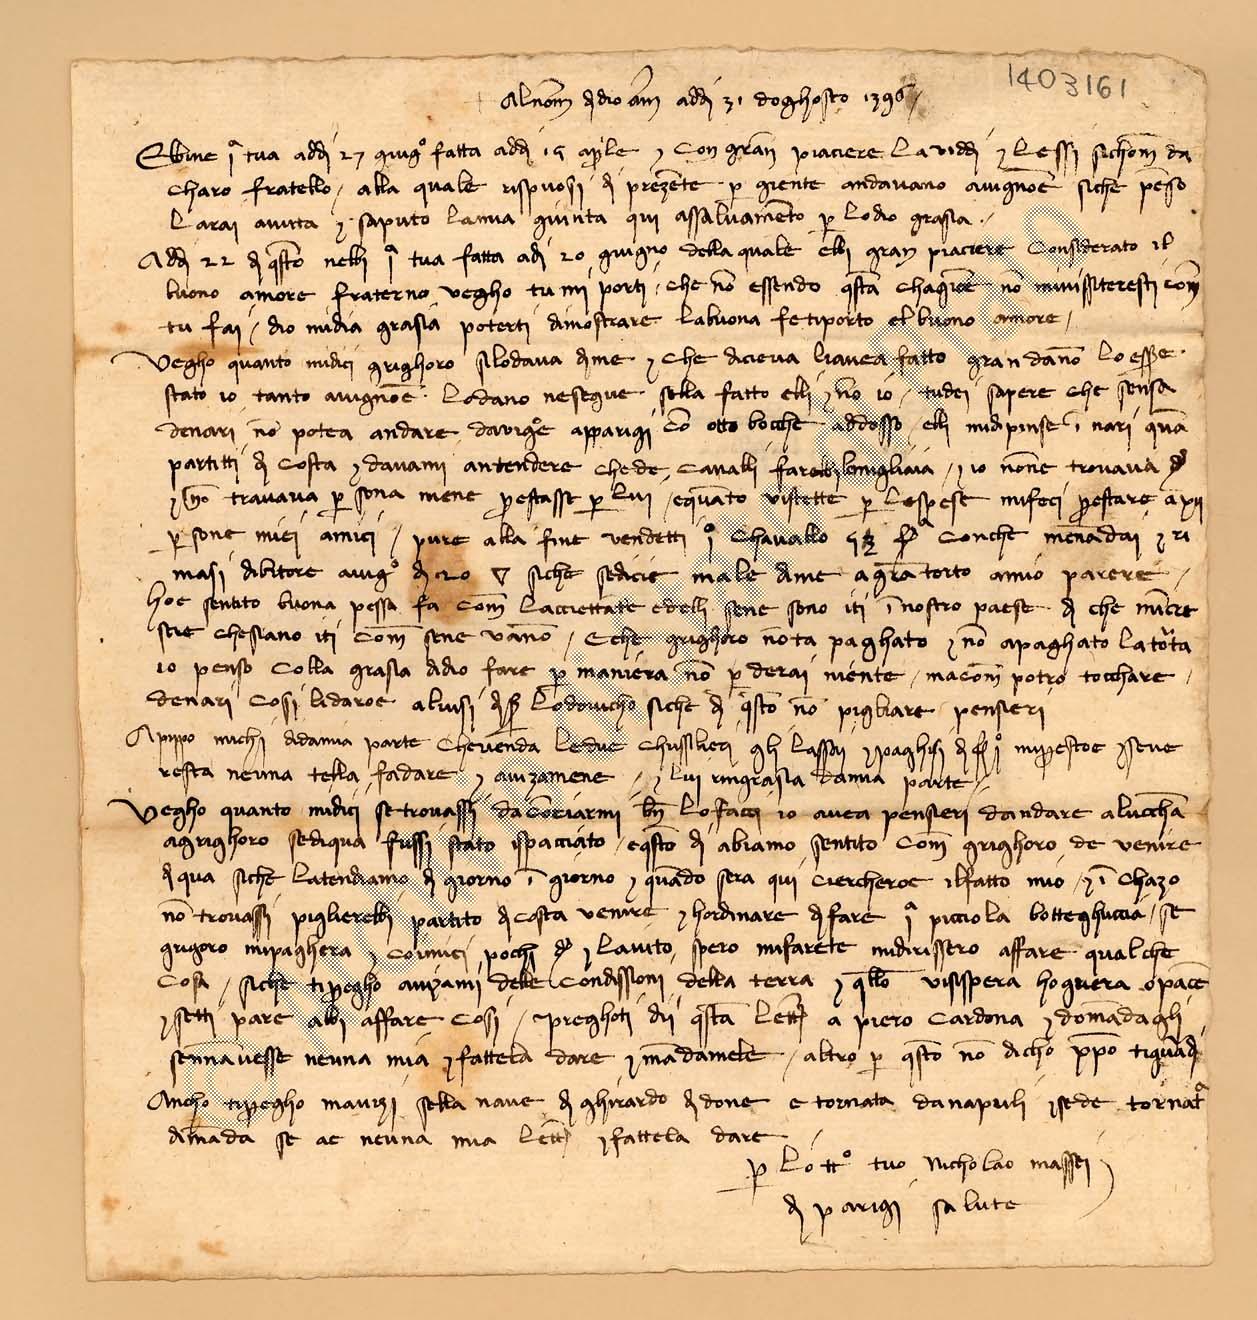 1403161
Al nom di dio am addi 31 doghosto 1396
Ebbine i^a tua addi 27 giug^o fatta addi 15 aprile e con gran piaciere la viddi e lessi sichom da
charo fratello / alla quale rispuosi di prezente p giente andavano avignone siche penso
larai avuta e saputo la mia giunta qui assalvamento p lo dio grasia
Addi 22 di questo nebbi i^a tua fatta adi 20 giugno della quale ebbi gran piaciere considerato il
buono amore fraterno vegho tu mi porti / che non essendo questa chagione non mi vissiteresti com
tu fai / dio mi dia grasia poterti dimostrare la buona fe ti porto el buono amore /
Vegho quanto mi dici grighoro si lodava di me e che dicieva li avea fatto gran danno lo essere
stato io tanto avignone lo danno ne segue sella fatto elli e no io / tu dei sapere che sensa
denari no potea andare da vig^oe apparigi co otto bocche addosso / elli mi dipinse i^ nari quan
partitti di costa e davami antendere che de cavalli farebbi
e no trovava p sona mene prestasse p lui / e quanto vistette p le spese mi feci prestare a xii
p sone miei amici / pure alla fine vendetti i^o chavallo conche menandai e ri
masi debitore avig^o di c20 siche se dicie male di me a gran torto a mio parere /
hoe sentito buona pessa fa com l acciettate edelli sene sono iti i^ nostro paese di che mincre
scie che siano iti com sene vanno / e che grighoro no ta paghato e no a paghato la
io penso colla grasia di dio fare p maniera no p derai niente / ma com potro tocchare
denari cosi li daroe a luisi di ser Lodovicho siche di questo no pigliare pensieri
A pippo michi di da mia parte che venda le due chusslieri gli lassai e paghisi di mi prestoe e seve
resta neuna tella fa dare e avizamene / e lui ringrasia da mia parte /
Vegho quanto mi dici se trovassi daconciarmi ben lo facci io avea pensieri dandare a luccha
a grighoro se di qua fussi stato ispacciato / e questo di abiamo sentito com grighoro de venire
di qua siche latendiamo di giorno i^ giorno e quando sera qui ciercheroe il fatto mio / e i^ chazo
no trovassi piglierebbi partito di costa venire e hordinare di fare i^a picciola botteghuccia / se
grigoro mi paghera e co miei pochi e l aiuto spero mi farete mi dirissero affare qualche
cosa / siche ti priegho avizami delle condissioni della terra e quello visispera ho guerra o pace
e setti pare abbi affare cosi / preghoti di questa lettera a piero cardona e domandagli
senn avesse neuna mia e fattela dare e mandamele / altro p questo no dicho
Ancho ti priegho mavizi sella nave di ghirardo di done e tornata da napuli e se de tornata
dimanda se ae neuna mia lettera e fattela dare /
p lo tt^o tuo Nicholao massei
di parigi salute